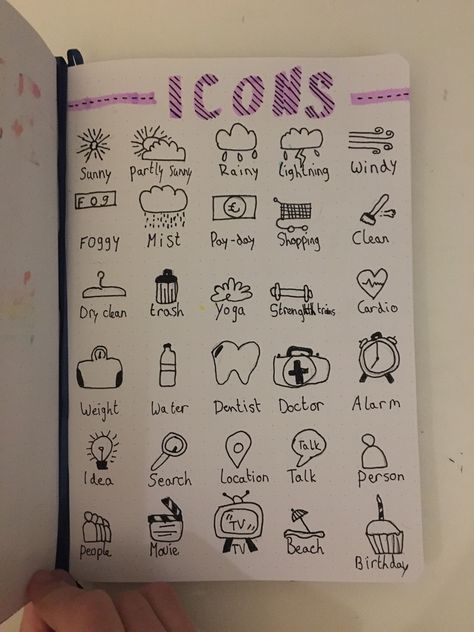 ICONS
Sunny Partly Sunny Rainy Lightning Windy
FOG
£
Foggy Mist Pay-day Shopping Clean
Dry clean trash Yoga Cardio
Weight Water Dentist Doctor Alarm
Talk
Idea Search Location Talk Person
TV
People Movie TV Beach Birthday